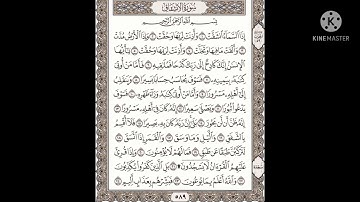 سُورَةُ الانشِقَاقِ
بِسْمِ اللَّهِ الرَّحْمَٰنِ الرَّحِيمِ
إِذَا السَّمَاءُ انشَقَّتْ ١ وَأَذِنَتْ لِرَبِّهَا وَحُقَّتْ ٢ وَإِذَا الْأَرْضُ مُدَّتْ ٣
وَأَلْقَتْ مَا فِيهَا وَتَخَلَّتْ ٤ وَأَذِنَتْ لِرَبِّهَا وَحُقَّتْ ٥ يَٰأَيُّهَا
الْإِنسَٰنُ إِنَّكَ كَادِحٌ إِلَىٰ رَبِّكَ كَدْحًا فَمُلَٰقِيهِ ٦ فَأَمَّا مَنْ أُوتِيَ
كِتَٰبَهُ بِيَمِينِهِ ٧ فَسَوْفَ يُحَاسَبُ حِسَابًا يَسِيرًا ٨ وَيَنقَلِبُ
إِلَىٰ أَهْلِهِ مَسْرُورًا ٩ وَأَمَّا مَنْ أُوتِيَ كِتَٰبَهُ وَرَاءَ ظَهْرِهِ ١٠ فَسَوْفَ
يَدْعُوا ثُبُورًا ١١ وَيَصْلَىٰ سَعِيرًا ١٢ إِنَّهُ كَانَ فِي أَهْلِهِ مَسْرُورًا ١٣
إِنَّهُ ظَنَّ أَن لَّن يَحُورَ ١٤ بَلَىٰ إِنَّ رَبَّهُ كَانَ بِهِ بَصِيرًا ١٥ فَلَا أُقْسِمُ
بِالشَّفَقِ ١٦ وَاللَّيْلِ وَمَا وَسَقَ ١٧ وَالْقَمَرِ إِذَا اتَّسَقَ ١٨
لَتَرْكَبُنَّ طَبَقًا عَن طَبَقٍ ١٩ فَمَا لَهُمْ لَا يُؤْمِنُونَ ٢٠ وَإِذَا قُرِئَ
عَلَيْهِمُ الْقُرْءَانُ لَا يَسْجُدُونَ ٢١ بَلِ الَّذِينَ كَفَرُوا يُكَذِّبُونَ ٢٢
وَاللَّهُ أَعْلَمُ بِمَا يُوعُونَ ٢٣ فَبَشِّرْهُم بِعَذَابٍ أَلِيمٍ ٢٤
٥٨٩
MADE WITH
KINEMASTER